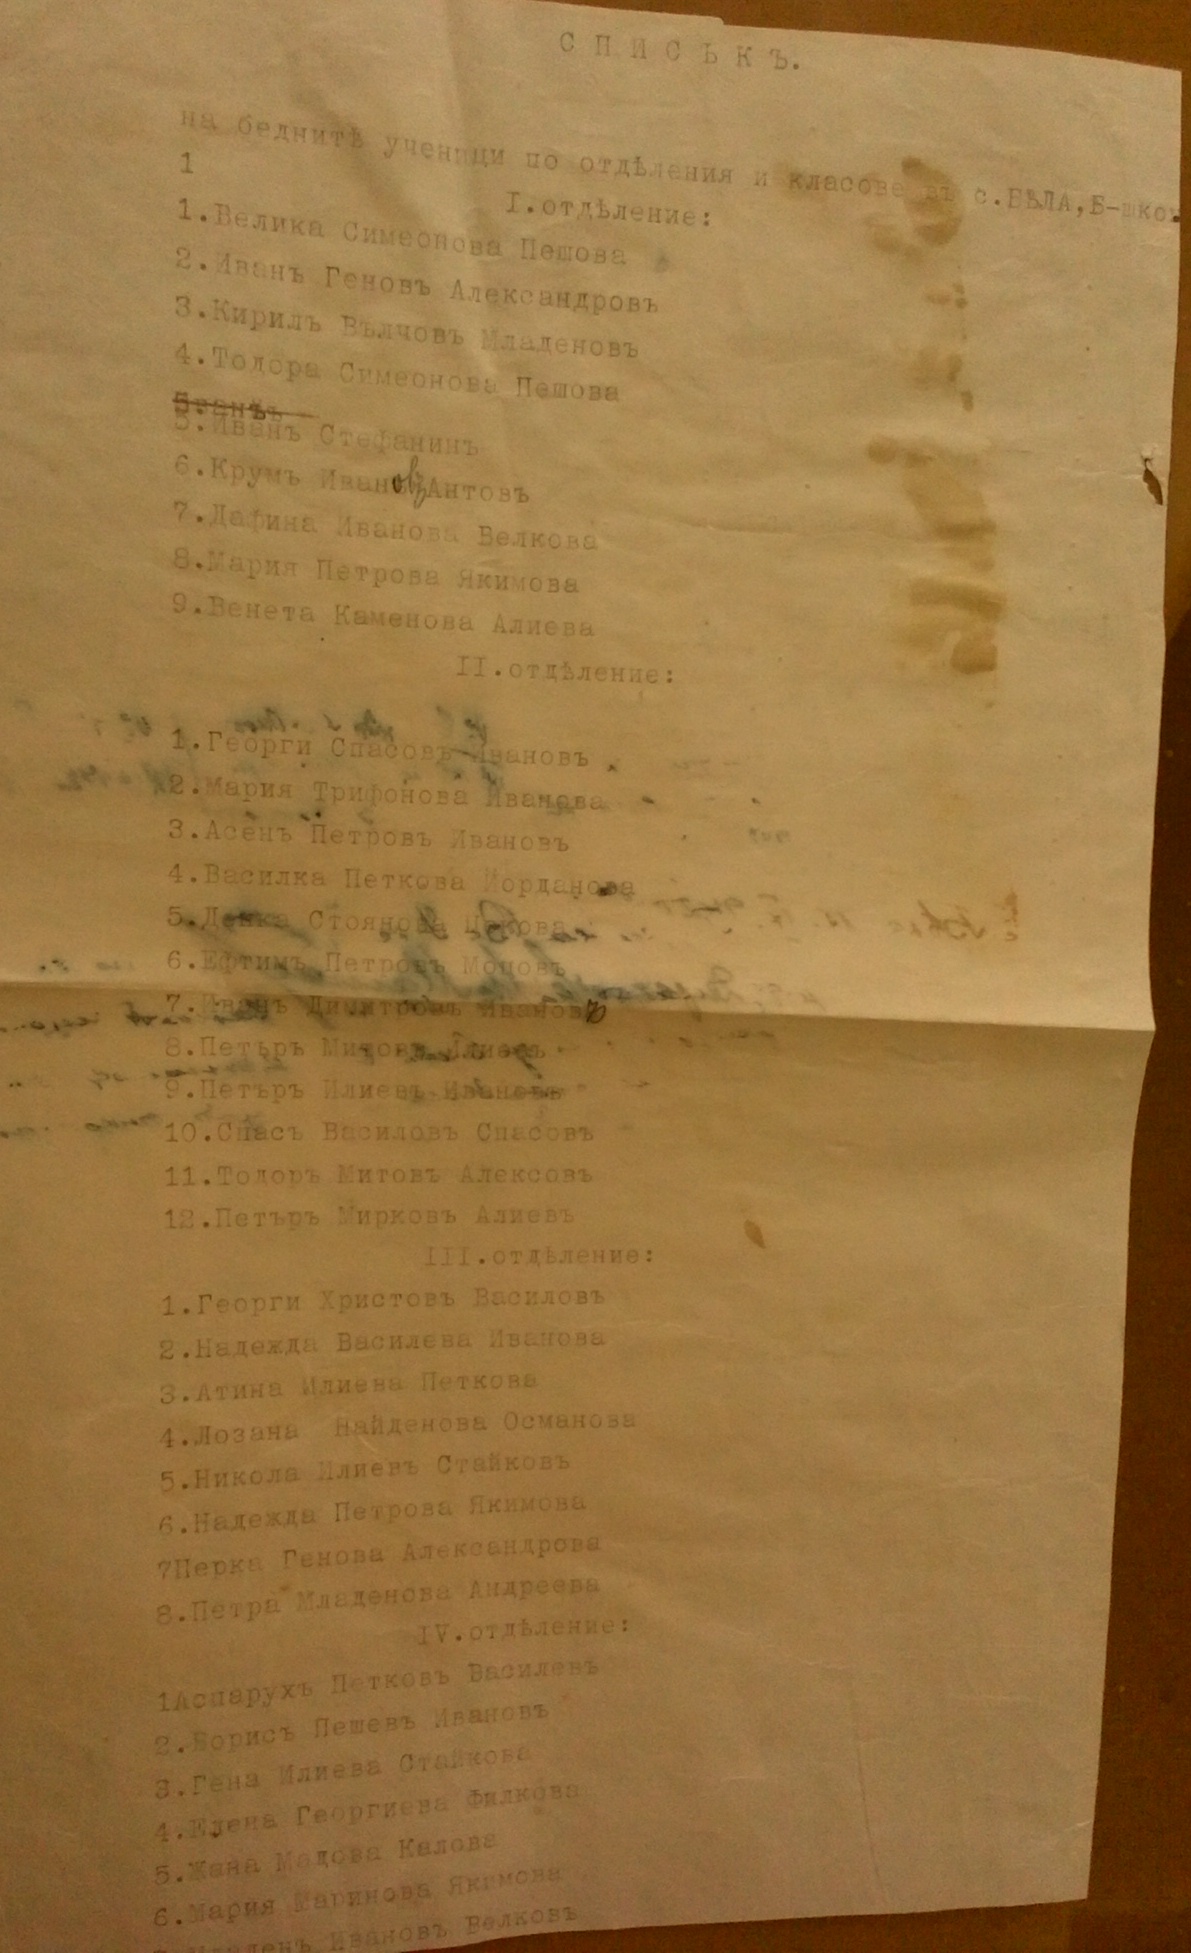 С П И С Ъ К Ъ.
на беднитѣ ученици по отдѣления и класове въ с.БѢЛА,Б-шко.
1
I.отдѣление:
1.Велика Симеонова Пешова
2.Иванъ Геновъ Александровъ
3.Кирилъ Вълчовъ Младеновъ
4.Тодора Симеонова Пешова
5.Ивенъ Стефанинъ
6.Крумъ Ивановъ Антовъ
7.Дафина Иванова Велкова
8.Мария Петрова Якимова
9.Венета Каменова Алиева
II.отдѣление:
1.Георги Спасовъ Ивановъ
2.Мария Трифонова Иванова
3.Асенъ Петровъ Ивановъ
4.Василка Петкова Йорданова
5.Ленка Стоянова
6.Ефтимъ Петровъ
7.Иванъ Димитровъ Ивановъ
8.Петъръ Митовъ Илиевъ
9.Петъръ Илиевъ Ивановъ
10.Спасъ Василовъ Спасовъ
11.Тодоръ Митовъ Алексовъ
12.Петъръ Мирковъ Алиевъ
III.отдѣление:
1.Георги Христовъ Василовъ
2.Надежда Василева Иванова
3.Атина Илиева Петкова
4.Лозана Найденова Османова
5.Никола Илиевъ Стайковъ
6.Надежда Петрова Якимова
7Перка Генова Александрова
8.Петра Младенова Андреева
IV.отдѣление:
1Аспарухъ Петковъ Василевъ
2.Борисъ Пешевъ Ивановъ
3.Гена Илиева Стайкова
4.Елена Георгиева Филкова
5.Жана Мадова Калова
6.Мария Маринова Якимова
Младенъ Ивановъ Велковъ